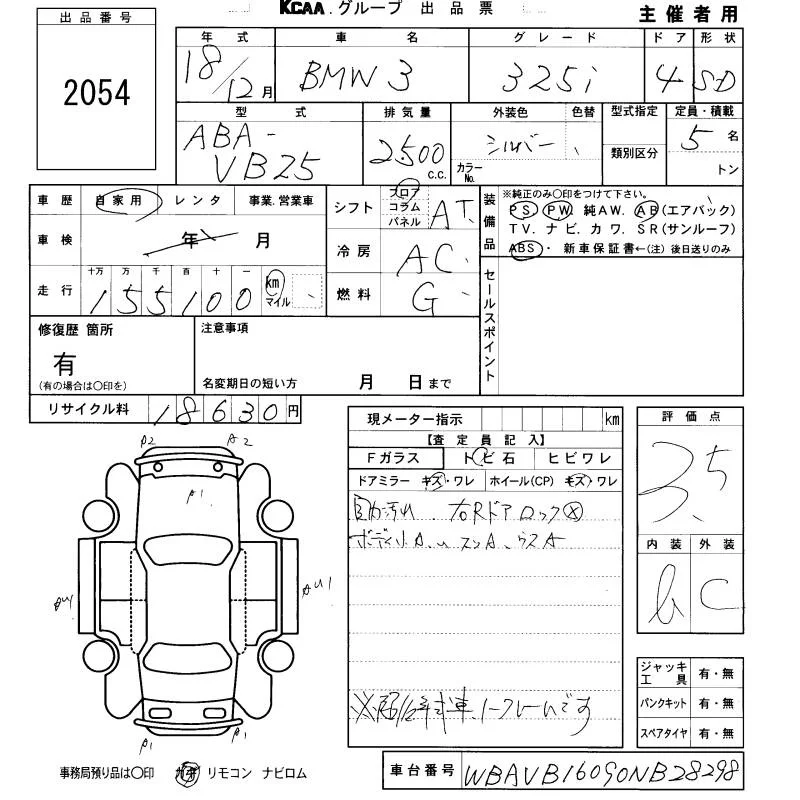 KCAA.グループ 出品票
主催者用
出品番号
2054
年式 車名 グレード ドア 形状
18/12月 BMW 3 325i 4 SD
型式 排気量 外装色 色替 型式指定 定員・積載
ABA-VB25 2500 c.c. シルバー カラーNo. 類別区分 5名 トン
車歴 自家用 レンタ 事業.営業車
車検 年 月
走行 十万 万 千 百 十 一
155100 km マイル
シフト フロア コラム パネル AT
冷房 AC
燃料 G
装備品
※純正のみ○印をつけて下さい。
PS PW 純AW. AB(エアバック)
TV. ナビ. カワ. SR(サンルーフ)
ABS・ 新車保証書←(注) 後日送りのみ
セールスポイント
修復歴 箇所
有
(有の場合は○印を)
注意事項
名変期日の短い方 月 日まで
リサイクル料 18630円
現メーター指示 km
【査定員記入】
Fガラス トビ石 ヒビワレ
ドアミラー キズ・ワレ ホイール(CP) キズ・ワレ
汚れ 右Rドアロック
A
年式車
です
評価点
3.5
内装 外装
b C
ジャッキ工具 有・無
パンクキット 有・無
スペアタイヤ 有・無
P2 A2
A1
AU1
P1 P1
事務局預り品は○印 カギ リモコン ナビロム
車台番号 WBAVB16090NB28298